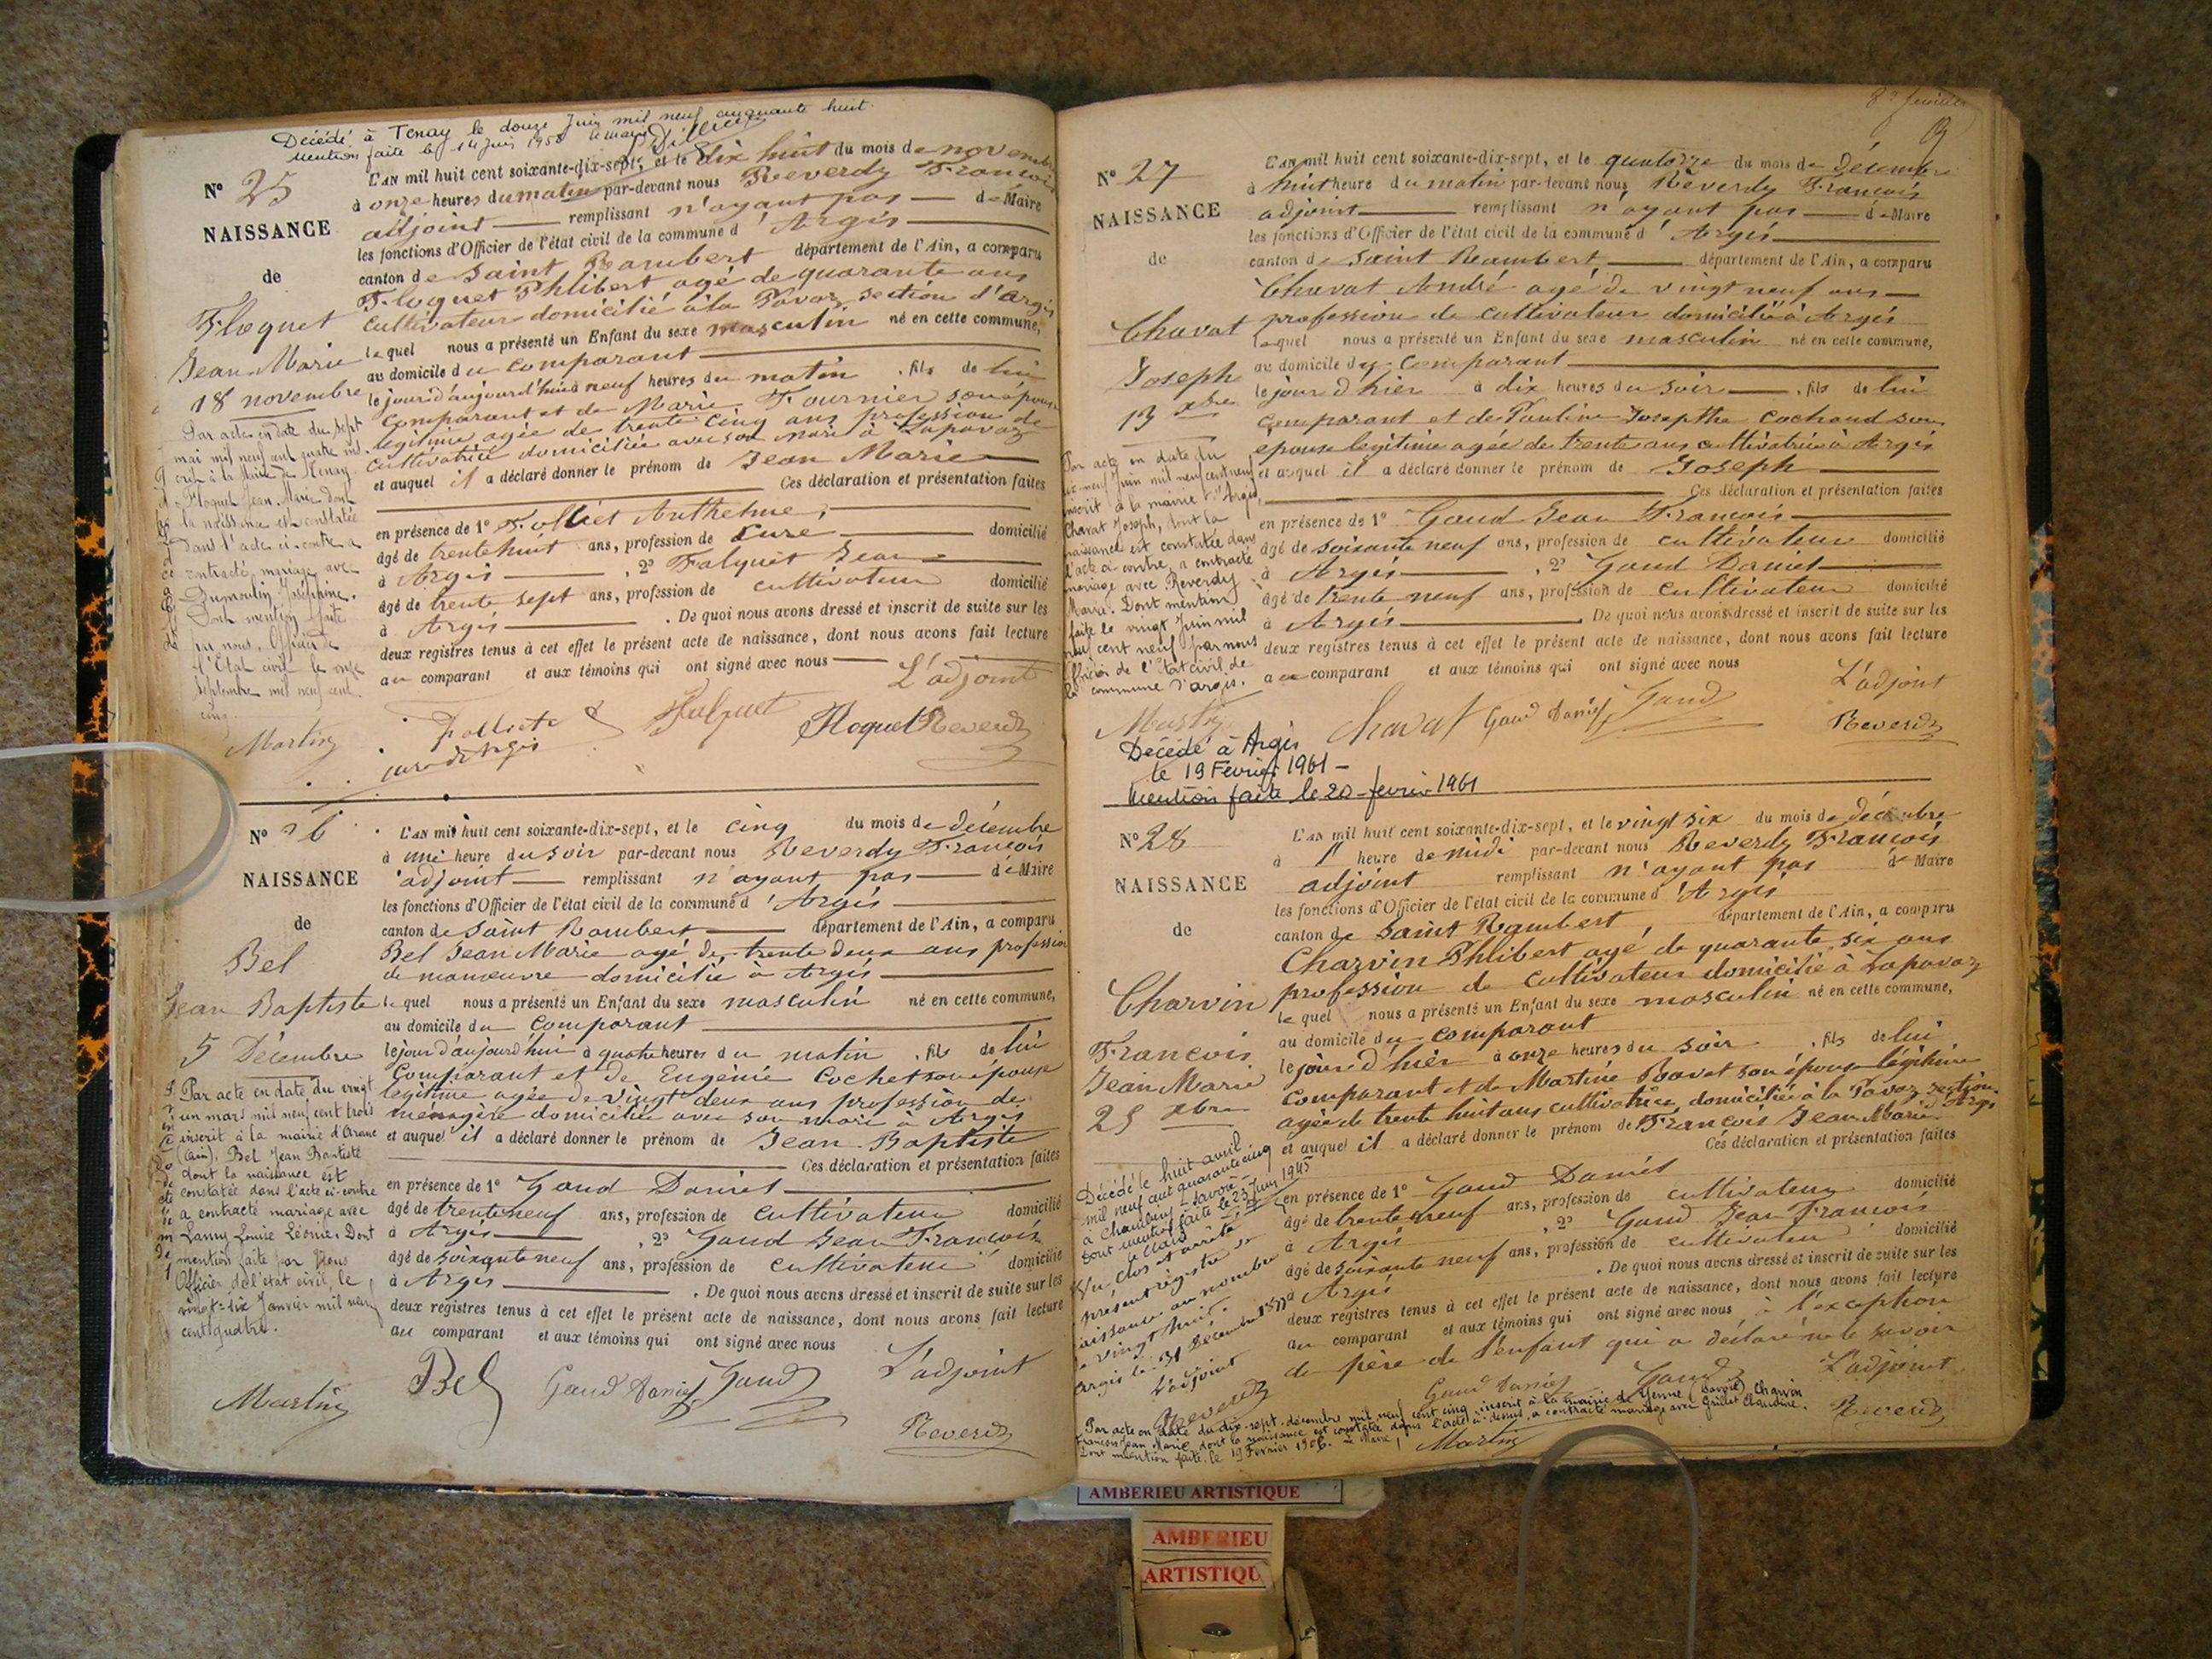 Décédé à Tenay le douze Juin mil neuf cinquante huit.
Mention faite le 14 Juin 1958 le maire
N° 25
NAISSANCE
de
Floquet
Jean Marie
18 novembre
Par acte en date du sept
mai mil neuf cent quatre
à la Mairie de Tenay
Floquet Jean-Marie dont
la naissance est constatée
dans l'acte ci-contre a
contracté mariage avec
Dumoulin Joséphine.
Dont mention faite
par nous, Officier de
l'Etat civil le onze
septembre mil neuf cent
cinq.
Martin
L'AN mil huit cent soixante-dix-sept, et le dix huit du mois de novembre
à onze heures du matin par-devant nous Reverdy François
adjoint remplissant n'ayant pas de Maire
les fonctions d'Officier de l'état civil de la commune d'Argis
canton de Saint Rambert département de l'Ain, a comparu
Floquet Phlibert agé de quarante ans
cultivateur domicilié à la Pavaz section d'Argis
lequel nous a présenté un Enfant du sexe masculin né en cette commune,
au domicile du comparant
le jour d'aujourd'hui à neuf heures du matin, fils de lui
comparant et de Marie Fournier son épouse
légitime agée de trente cinq ans profession de
cultivatrice domiciliée avec son mari à Lapavaz
et auquel il a déclaré donner le prénom de Jean Marie
Ces déclaration et présentation faites
en présence de 1° Folliet Anthelme,
âgé de trente huit ans, profession de Curé domicilié
à Argis, 2° Falquet Jean
âgé de trente sept ans, profession de cultivateur domicilié
à Argis. De quoi nous avons dressé et inscrit de suite sur les
deux registres tenus à cet effet le présent acte de naissance, dont nous avons fait lecture
au comparant et aux témoins qui ont signé avec nous L'adjoint
Falquet Floquet Reverdy
curé d'Argis
N° 26
NAISSANCE
de
Bel
Jean Baptiste
5 Décembre
Par acte en date du vingt
un mars mil neuf cent trois
inscrit à la mairie d'Arane
(Ain), Bel Jean Baptiste
dont la naissance est
constatée dans l'acte ci-contre
a contracté mariage avec
Lamy Louise Léonie. Dont
mention faite par Nous
Officier de l'état civil, le
vingt-six Janvier mil neuf
cent quatre.
Martin
L'AN mil huit cent soixante-dix-sept, et le cinq du mois de décembre
à une heure du soir par-devant nous Reverdy François
adjoint remplissant n'ayant pas de Maire
les fonctions d'Officier de l'état civil de la commune d'Argis
canton de Saint Rambert département de l'Ain, a comparu
Bel Jean Marie agé de trente deux ans profession
de manœuvre domicilié à Argis
lequel nous a présenté un Enfant du sexe masculin né en cette commune,
au domicile du comparant
le jour d'aujourd'hui à quatre heures du matin, fils de lui
comparant et de Eugénie Cochet son épouse
légitime agée de vingt deux ans profession de
ménagère domiciliée avec son mari à Argis
et auquel il a déclaré donner le prénom de Jean Baptiste
Ces déclaration et présentation faites
en présence de 1° Gaud Daniel
âgé de trente neuf ans, profession de cultivateur domicilié
à Argis, 2° Gaud Jean François
âgé de soixante neuf ans, profession de cultivateur domicilié
à Argis. De quoi nous avons dressé et inscrit de suite sur les
deux registres tenus à cet effet le présent acte de naissance, dont nous avons fait lecture
au comparant et aux témoins qui ont signé avec nous
Bel Gaud Daniel Gaud L'adjoint
Reverdy
N° 27
NAISSANCE
de
Chavat
Joseph
13 xbre
Par acte en date du
dix neuf Juin mil neuf cent neuf
inscrit à la mairie d'Argis,
Chavat Joseph, dont la
naissance est constatée dans
l'acte ci-contre, a contracté
mariage avec Reverdy
Maria. Dont mention
faite le vingt Juin mil
neuf cent neuf par nous
Officier de l'Etat civil de
la commune d'Argis.
Martin
Décédé à Argis
le 19 Février 1961 -
Mention faite le 20 février 1961
L'AN mil huit cent soixante-dix-sept, et le quatorze du mois de décembre
à huit heure du matin par-devant nous Reverdy François
adjoint remplissant n'ayant pas de Maire
les fonctions d'Officier de l'état civil de la commune d'Argis
canton de Saint Rambert département de l'Ain, a comparu
Chavat André agé de vingt neuf ans
profession de cultivateur domicilié à Argis
lequel nous a présenté un Enfant du sexe masculin né en cette commune,
au domicile du comparant
le jour d'hier à dix heures du soir, fils de lui
comparant et de Pauline Josepthe Cochand son
épouse légitime agée de trente ans cultivatrice à Argis
et auquel il a déclaré donner le prénom de Joseph
Ces déclaration et présentation faites
en présence de 1° Gaud Jean François
âgé de soixante neuf ans, profession de cultivateur domicilié
à Argis, 2° Gaud Daniel
âgé de trente neuf ans, profession de cultivateur domicilié
à Argis. De quoi nous avons dressé et inscrit de suite sur les
deux registres tenus à cet effet le présent acte de naissance, dont nous avons fait lecture
au comparant et aux témoins qui ont signé avec nous
L'adjoint
Chavat Gaud Daniel Gaud Reverdy
N° 28
NAISSANCE
de
Charvin
François
Jean Marie
25 xbre
Décédé le huit avril
mil neuf cent quarante cinq
à Chambéry - Savoie -
Dont mention faite le 23 Juin 1945
Vu clos et arrêté le
présent registre de
naissance au nombre
de vingt huit.
Argis le 31 Décembre 1877
L'adjoint
Reverdy
L'AN mil huit cent soixante-dix-sept, et le vingt six du mois de décembre
à 1 heure de midi par-devant nous Reverdy François
adjoint remplissant n'ayant pas de Maire
les fonctions d'Officier de l'état civil de la commune d'Argis
canton de Saint Rambert département de l'Ain, a comparu
Charvin Phlibert agé de quarante six ans
profession de cultivateur domicilié à Lapavaz
lequel nous a présenté un Enfant du sexe masculin né en cette commune,
au domicile du comparant
le jour d'hier à onze heures du soir, fils de lui
comparant et de Martine Bavet son épouse légitime
agée de trente huit ans cultivatrice domiciliée à la Pavaz section d'Argis
et auquel il a déclaré donner le prénom de François Jean Marie
Ces déclaration et présentation faites
en présence de 1° Gaud Daniel
âgé de trente neuf ans, profession de cultivateur domicilié
à Argis, 2° Gaud Jean François
âgé de soixante neuf ans, profession de cultivateur domicilié
à Argis. De quoi nous avons dressé et inscrit de suite sur les
deux registres tenus à cet effet le présent acte de naissance, dont nous avons fait lecture
au comparant et aux témoins qui ont signé avec nous à l'exception
de père de l'enfant qui a déclaré ne le savoir
Gaud Daniel Gaud L'adjoint
Reverdy
Par acte en date du dix-sept décembre mil neuf cent cinq inscrit à la mairie de Yenne (Savoie) Charvin
François Jean Marie, dont la naissance est constatée dans l'acte ci-dessus, a contracté mariage avec Grillet Claudine.
Dont mention faite le 19 Février 1906. Le Maire, Martin
AMBERIEU ARTISTIQUE
AMBERIEU
ARTISTIQU